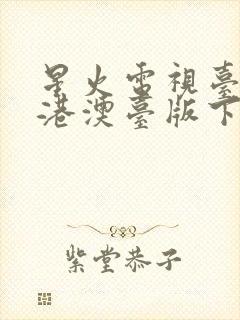 星火電視臺
港澳臺版下
紫堂恭子